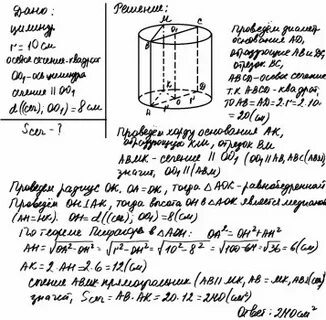 Дано:
цилиндр
r = 10 см
осевое сечение - квадрат
OO₁ - ось цилиндра
сечение || OO₁
d((сеч), OO₁) = 8 см
Sсеч - ?
Решение:
M
C
O₁
B
K
H
O
D
A
Проведём диаметр
основания AD,
образующие AB и DC,
отрезок BC,
ABCD - осевое сечение
т.к. ABCD - квадрат,
то AB = AD = 2·r = 2·10 =
= 20 (см)
Проведём хорду основания AK,
образующую KM, отрезок BM
ABMK - сечение || OO₁ (OO₁ || AB, AB ⊂ (ABM))
значит, OO₁ || (ABM)
Проведём радиус OK, OA = OK, тогда △AOK - равнобедренный
Проведём OH ⊥ AK, тогда высота OH в △AOK является медианой
(AH = HK). OH = d((сеч); OO₁) = 8 (см)
По теореме Пифагора в △AOH: OA² = OH² + AH²
AH = √OA² - OH² = √r² - OH² = √10² - 8² = √100 - 64 = √36 = 6 (см)
AK = 2·AH = 2·6 = 12 (см)
сечение ABMK прямоугольник (AB || MK, AB = MK, AB ⊥ (осн))
значит, Sсеч = AB·AK = 20·12 = 240 (см²)
Ответ: 240 см²